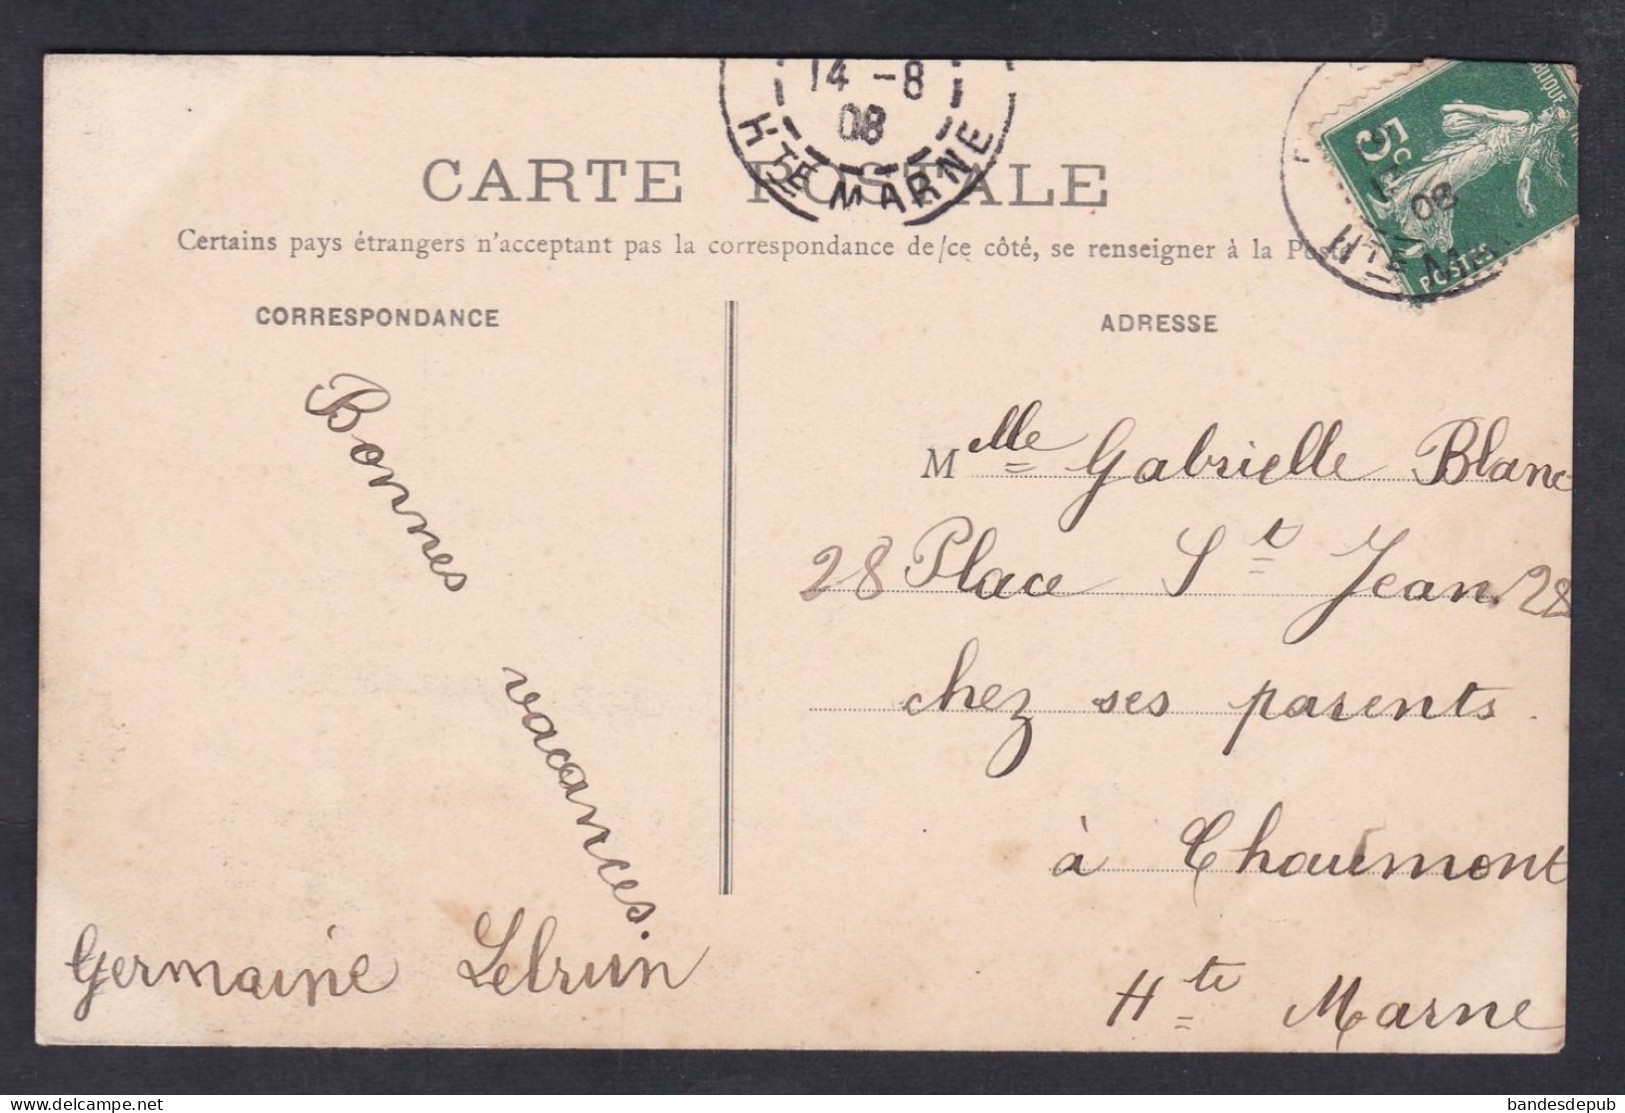 14 - 8
08
HTE MARNE
CARTE POSTALE
Certains pays étrangers n'acceptant pas la correspondance de ce côté, se renseigner à la Poste
5c
POSTES
08
CORRESPONDANCE
ADRESSE
Bonnes
vacances.
Germaine Lebrun
Mlle Gabrielle Blanc
28 Place St Jean. 28
chez ses parents.
à Chaumont
Hte Marne
bandesdepub